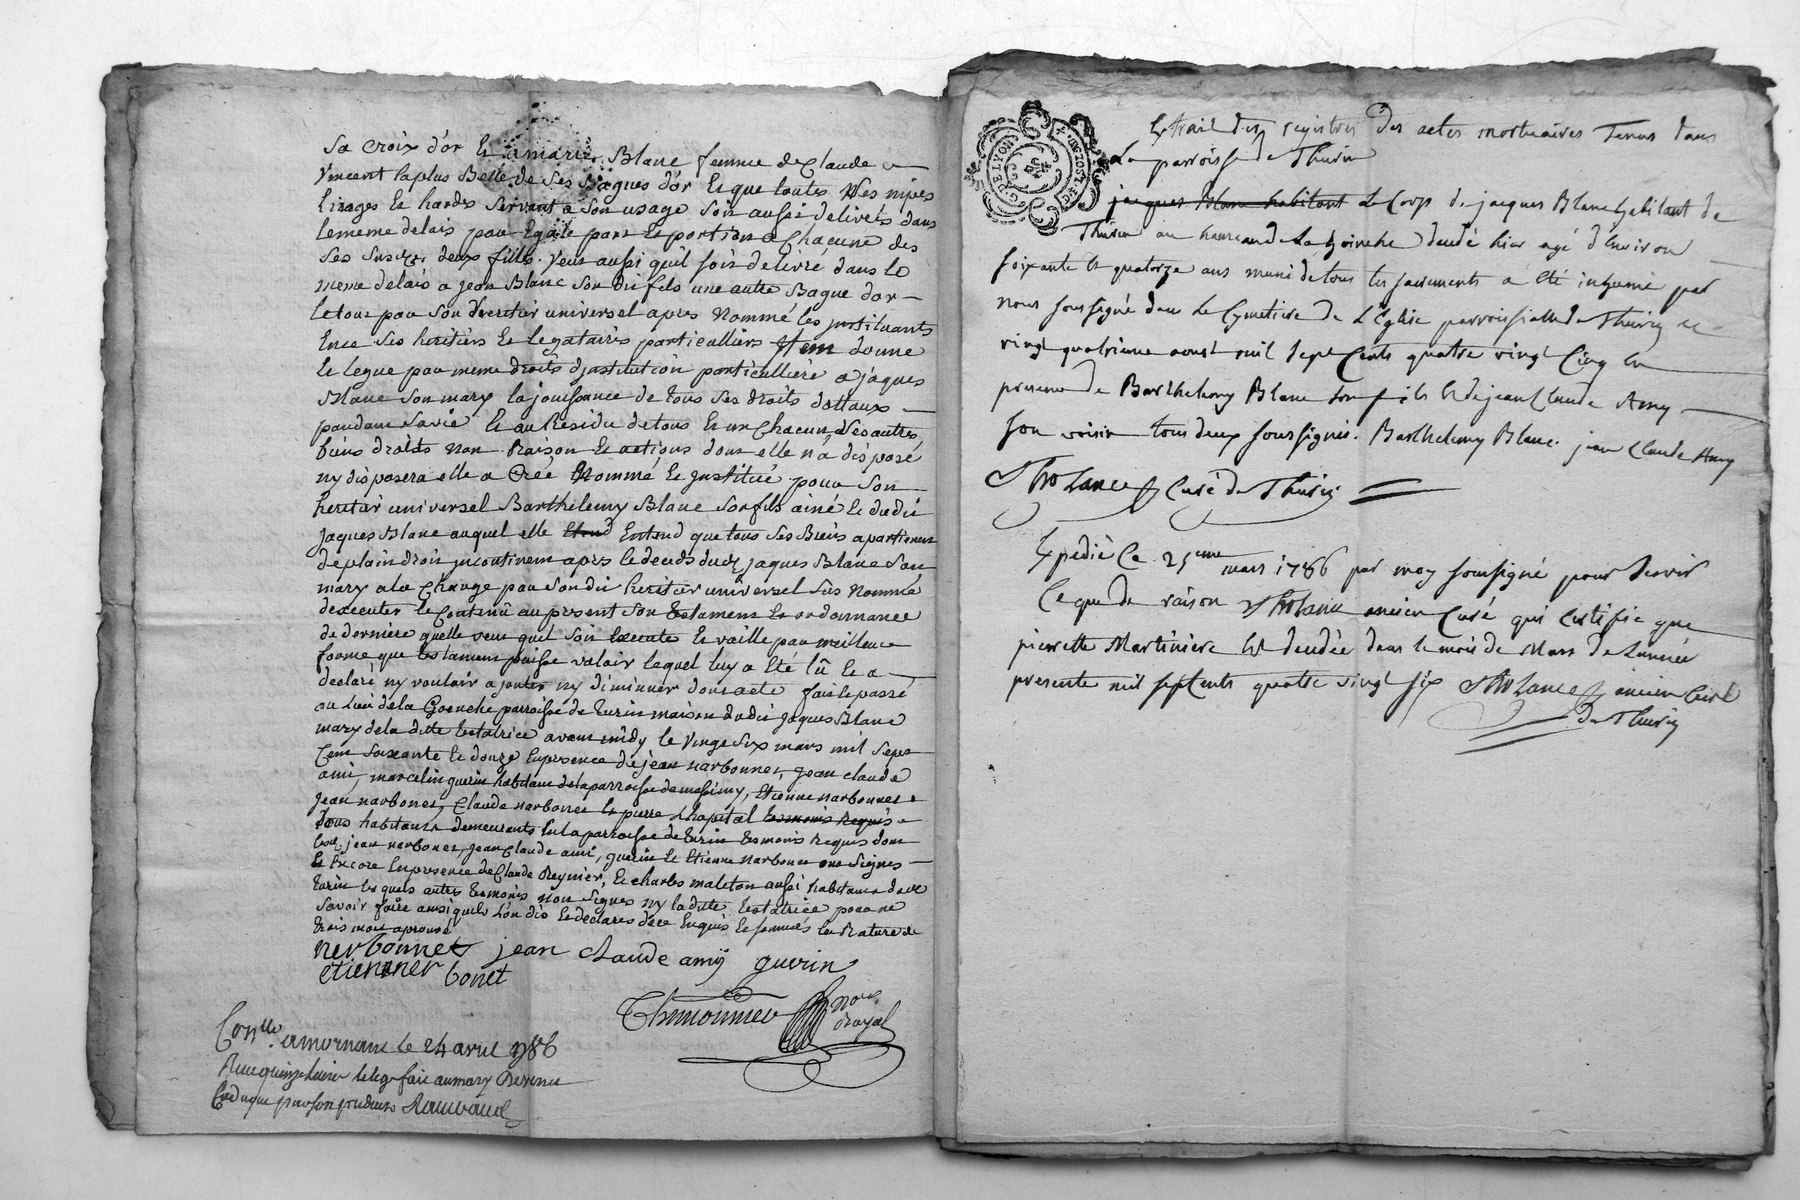 Sa croix d'or Et a marie Blanc femme de Claude
Vincent la plus Belle de Ses Bagues d'or Et que toutes Ses nipes
Linages Et hardes Servant a Son usage Soit aussi delivrés dans
le meme delais pour Egale part Et portion a Chacune des
Ses Susd. deux filles. Veut aussi quil soit delivré dans le
meme delais a jean Blanc Son dit fils une autre Bague d'or
le tout par Son heritier universel apres Nommé les jnstituants
Ence Ses heritiers Et legataires particulliers Jtem donne
Et legue par meme droits d'jnstitution particulliere a jaques
Blanc Son mary la jouissance de tous Ses droits dottaux
pandant Sa vie Et au Residu de tous Et un Chacun Ses autres
biens droits Nom Raison Et actions dont elle n'a disposé
ny disposera elle a Créé Nommé Et jnstitué pour Son
heritier universel Barthelemy Blanc Son fils ainé Et dudit
jaques Blanc auquel elle Entend que tous Ses Biens apartienent
de plain droit jncontinent apres le deceds dud. jaques Blanc Son
mary a la Charge par Son dit heritier universel Sus Nommé
d'executer le Contenû au present Son testament Et ordonnance
de derniere quelle veut quil Soit Execute Et vaille par meilleure
forme que testament puisse valoir lequel luy a Eté lû Et a
declaré ny vouloir ajouter ny diminuer dont acte fait Et passé
au Lieu de la Goenche parroisse de Turin maison dudit jaques Blanc
mary de la ditte testatrice avant midy le Vingt Six mars mil Sept
Cent Soixante Et douze En presence de jean narbonnet, jean claude
ami, marcelin guerin habitant de la parroisse de messimy, Etienne narbonnet
jean narbonet, Claude narbonet Et pierre Lhopital temoins Requis
tous habitants demeurants En la parroisse de turin temoins Requis dont
lesd. jean narbonet, jean Claude ami, guerin Et Etienne Narbonet ont Signes
Et Encore En presence de Claude Reynier, Et charles maleton aussi habitants dud.
turin les quels autres temoins n'on Signes ny la ditte testatrice pour ne
Savoir faire ainsi quils l'on dit Et declares de ce Enquis Et Sommés la Rature de
trois mots aprouvé
nerbonnet jean claude amÿ guerin
etienner bonet
Thimonnier no.re Royal
Con.lle a mornant le 24 avril 1786
Reçu quinze livres le legs fait au mary Devenu
Caduque par son predeces
Extrait des registres des actes mortuaires Tenus dans
La parroisse de Thurin
jacques Blanc habitant Le Corps de jacques Blanc habitant de
Thurin au hameau de La Goinche decedé hier agé d'Environ
soixante et quatorze ans muni de tous les sacrements a été inhumé par
nous soussigné dans Le Cymetiere de L'Eglise parroissialle de Thurin ce
vingt quatrieme aoust mil sept Cents quatre vingt Cinq en
presence de Barthelemy Blanc son fils et de jean Claude Amy
son voisin tous deux soussignés. Barthelemy Blanc. jean Claude Amy
Curé de Thurin
Expedié Ce 25eme mars 1786 par moy soussigné pour servir
Ce que de raison ancien Curé qui Certifie que
pierrette Martiniere Est decedée dans le mois de Mars de L'année
presente mil sept Cents quatre vingt six ancien Curé
de Thurin
G DE LYON